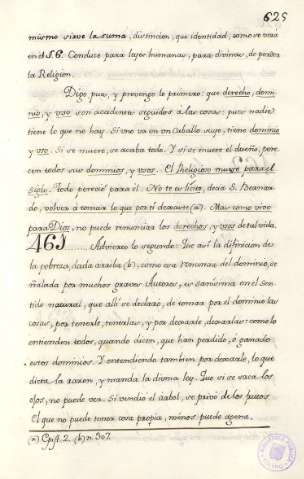 625
mismo sirve la suma, distincion, que identidad, como se verá
en el §. 6. Conduce para leyes humanas, para divinas, de perder
la Religion.
Digo pues, y prevengo lo primero: que derecho, domi-
nio, y uso son accidentes seguidos á las cosas: pues nadie
tiene lo que no hay. Si uno va en un caballo suyo, tiene dominio
y uso. Si se muere, se acaba todo. Y si se muere el dueño, pere-
cen todos sus dominios, y usos. El Religioso muere para el
siglo. Todo pereció para él. No te es licito, decia S. Bernar-
do, volver á tomar lo que por ti dexaste (a). Mas como vive
para Dios, no puede renunciar los derechos y usos de tal vida.
463 Advierto lo segundo: Que aun la difinicion de
la pobreza, dada arriba (b), como una renuncia del dominio, se-
ñalada por muchos graves Autores, es sanisima en el sen-
tido natural, que allí se declaró, de tomar por el dominio las
cosas, por tenerle, tenerlas, y por dexarle, dexarlas: como lo
entienden todos, quando dicen, que han perdido, ó ganado
estos dominios. Y entendiendo tambien por dexarle, lo que
dicta la razon, y manda la divina ley. Que si se saca los
ojos, no puede ver. Si vendió el arbol, se privó de los frutos.
El que no puede tener cosa propia, menos puede agena.
(a) Epist. 2. (b) n. 307.